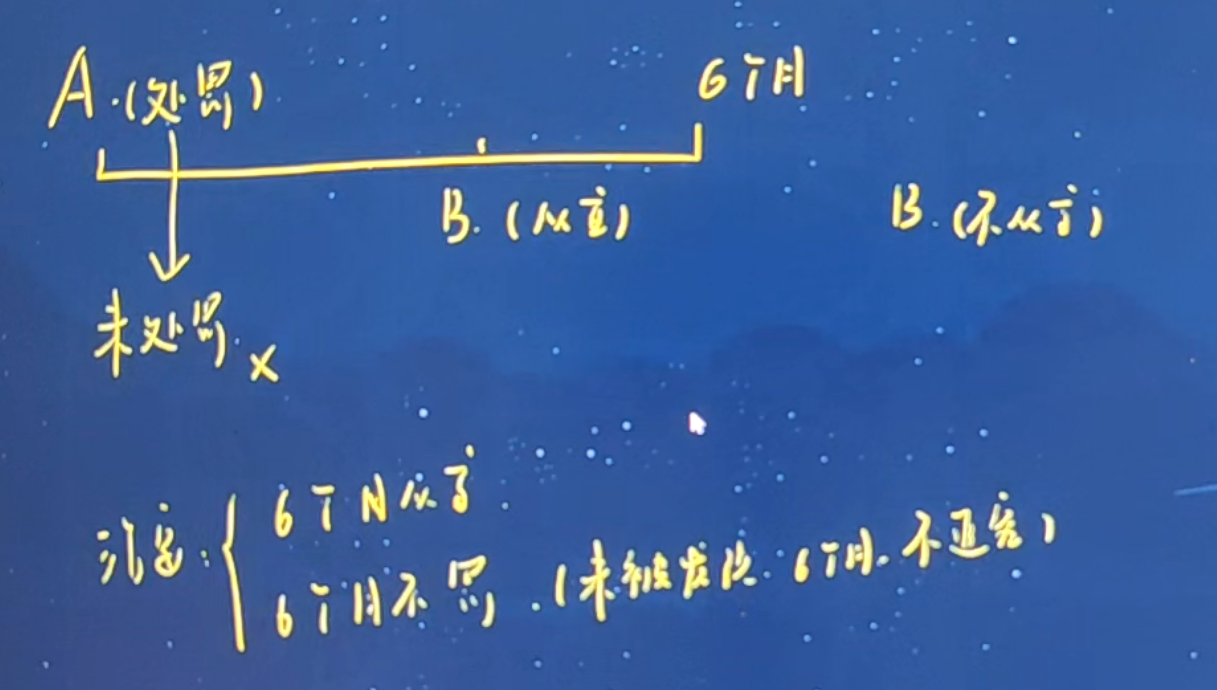 A.(处罚)
6个月
B.(从重)
B.(不从重)
未处罚.×
治安:
6个月从重.
6个月不罚.(未被发现.6个月.不追究)